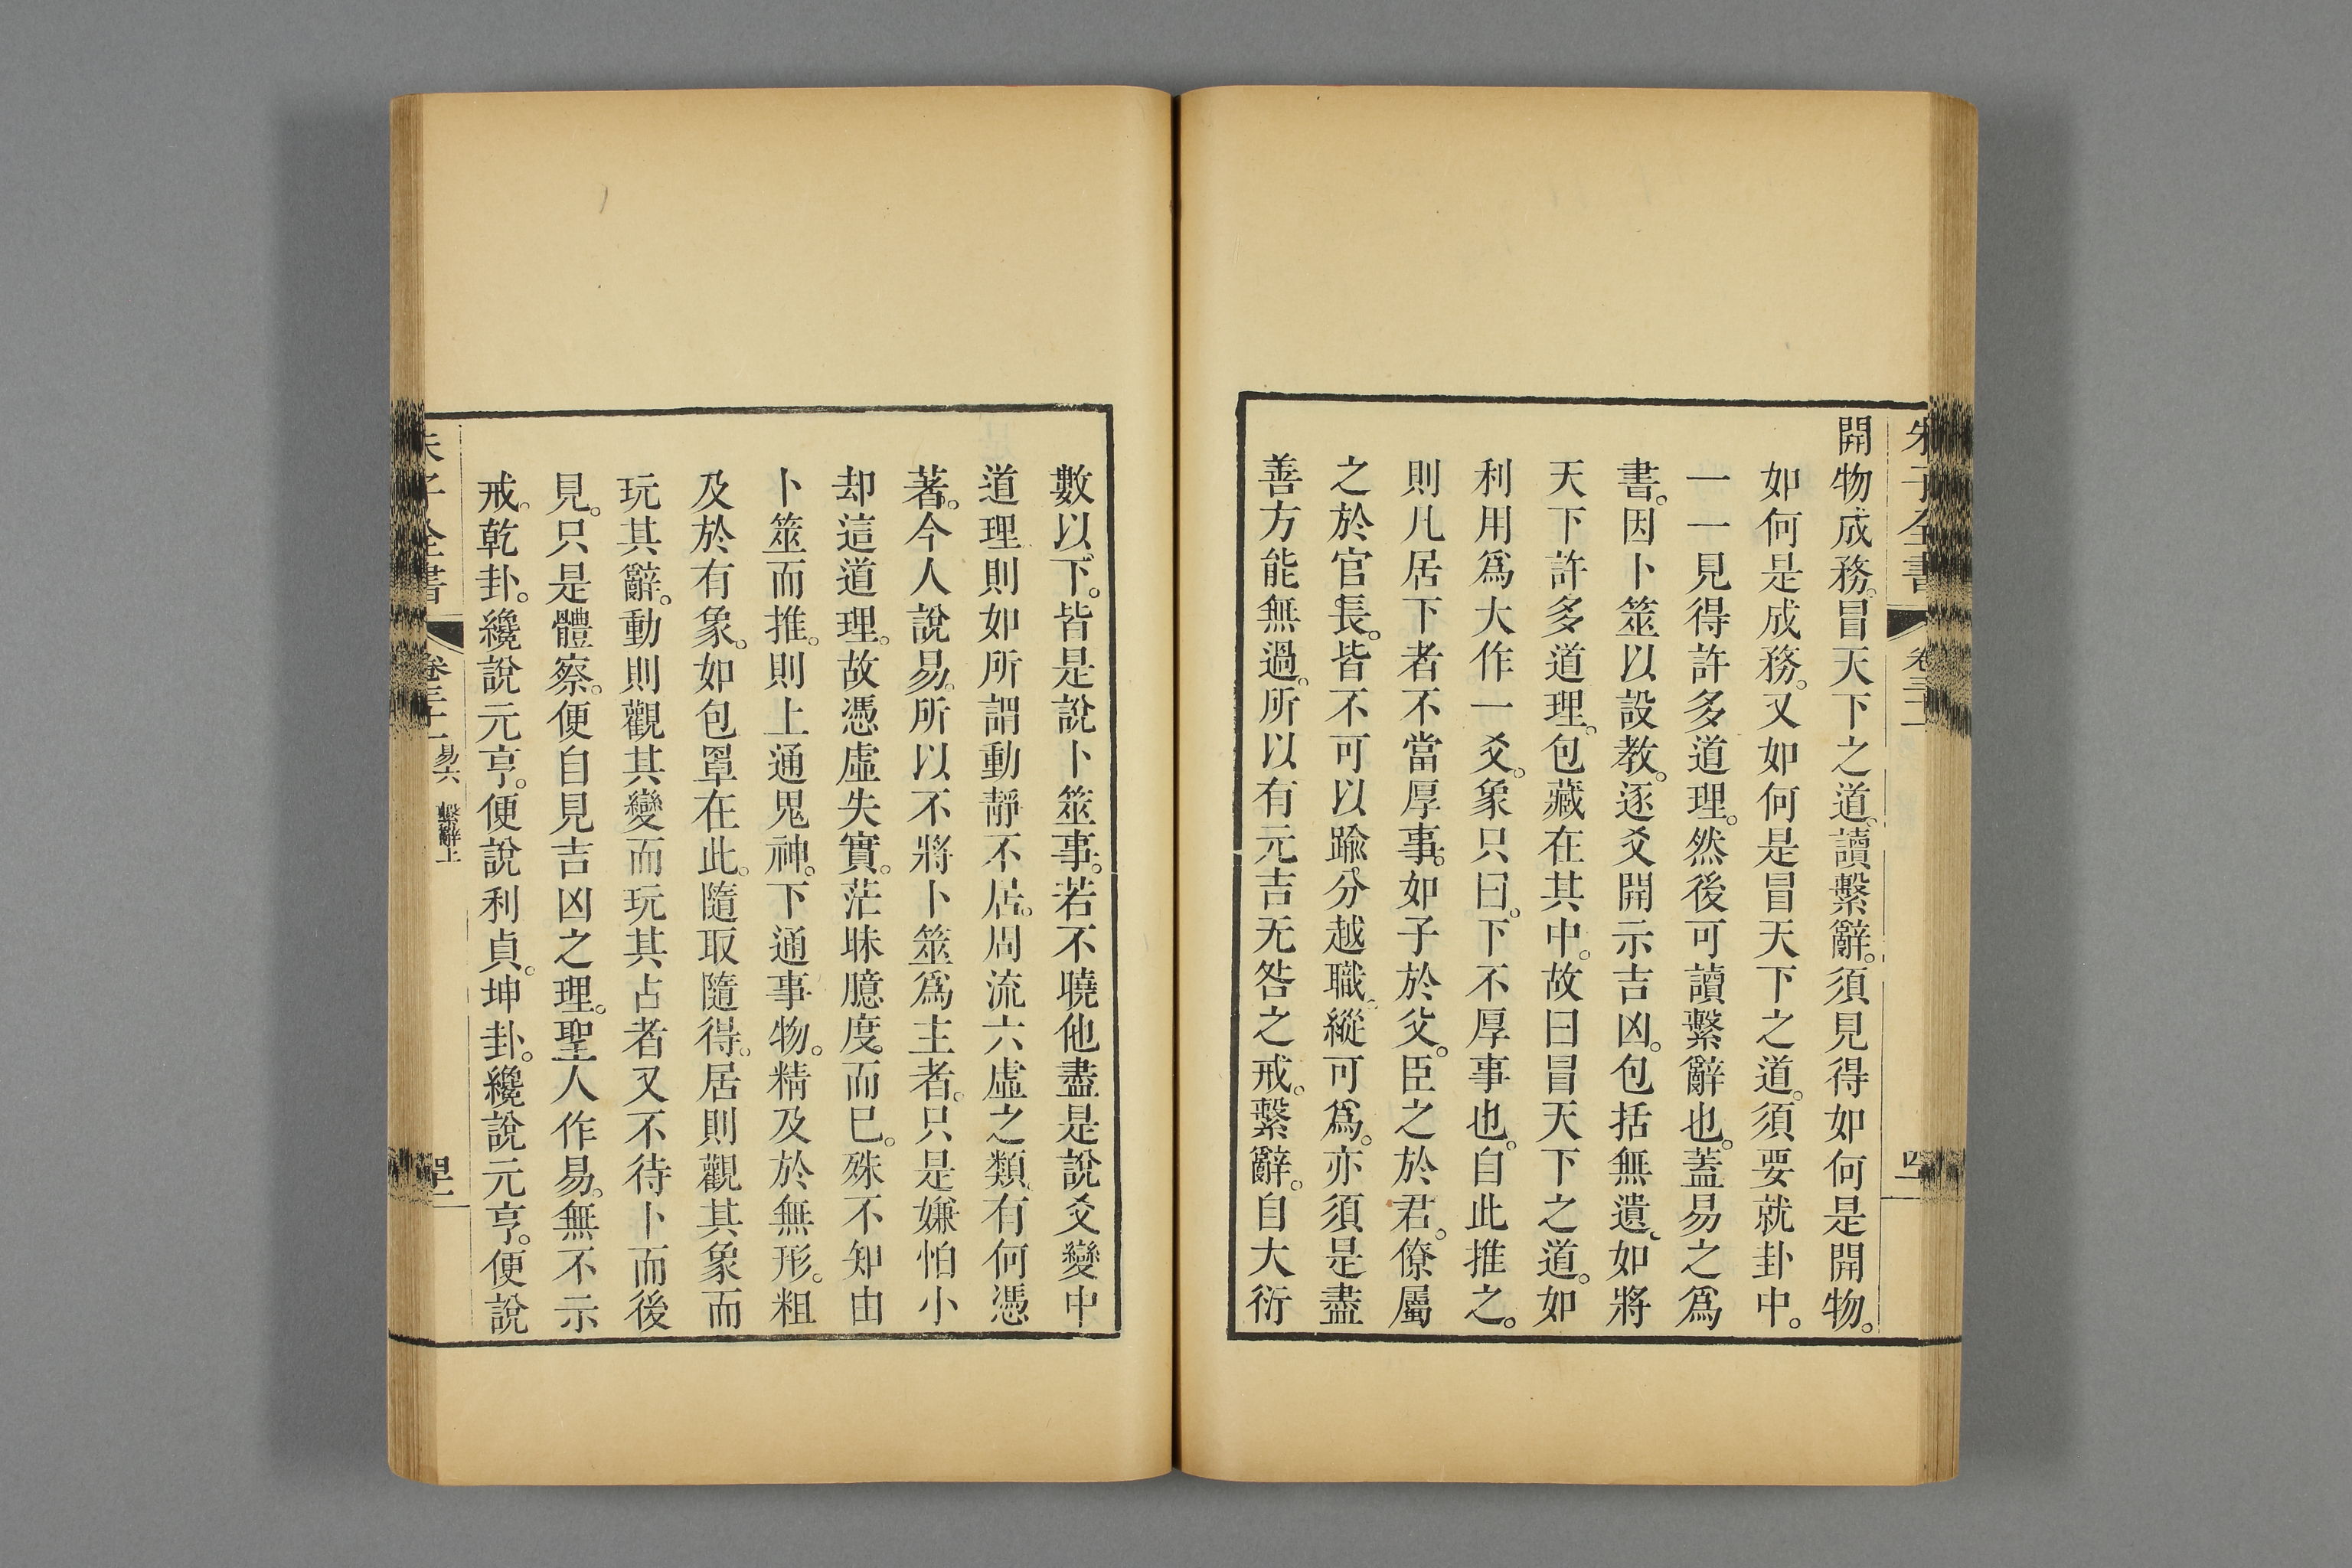 開物成務。冒天下之道。讀繫辭。須見得如何是開物。
如何是成務。又如何是冒天下之道。須要就卦中。
一一見得許多道理。然後可讀繫辭也。蓋易之爲
書。因卜筮以設教。逐爻開示吉凶。包括無遺。如將
天下許多道理。包藏在其中。故曰冒天下之道。如
利用爲大作一爻。象只曰。下不厚事也。自此推之。
則凡居下者不當厚事。如子於父。臣之於君。僚屬
之於官長。皆不可以踰分越職。縱可爲。亦須是盡
善方能無過。所以有元吉无咎之戒。繫辭。自大衍
數以下。皆是說卜筮事。若不曉他盡是說爻變中
道理則如所謂動靜不居。周流六虛之類。有何憑
著。今人說易。所以不將卜筮爲主者。只是嫌怕小
却這道理。故憑虛失實。茫昧臆度。而已。殊不知由
卜筮而推。則上通鬼神。下通事物。精及於無形。粗
及於有象。如包罩在此。隨取隨得。居則觀其象而
玩其辭。動則觀其變而玩其占者又不待卜而後
見。只是體察。便自見吉凶之理。聖人作易。無不示
戒。乾卦。纔說元亨。便說利貞。坤卦。纔說元亨。便說
易六 繫辭上